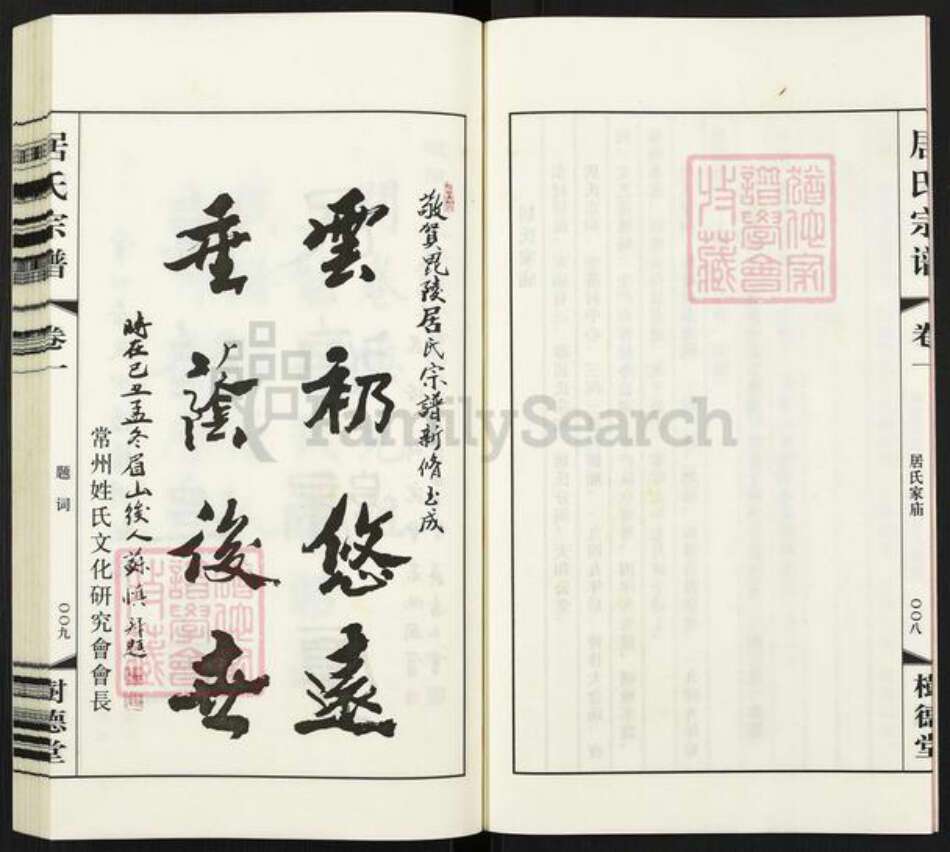 居氏宗谱
卷一
居氏家庙
〇〇八
樹德堂
譜學會
收藏
敬賀毘陵居氏宗譜新脩玉成
雲礽悠遠
垂蔭後世
時在己丑孟冬眉山後人蘇慎
常州姓氏文化研究會會長
居氏宗譜
卷一
题词
〇〇九
树德堂
FamilySearch